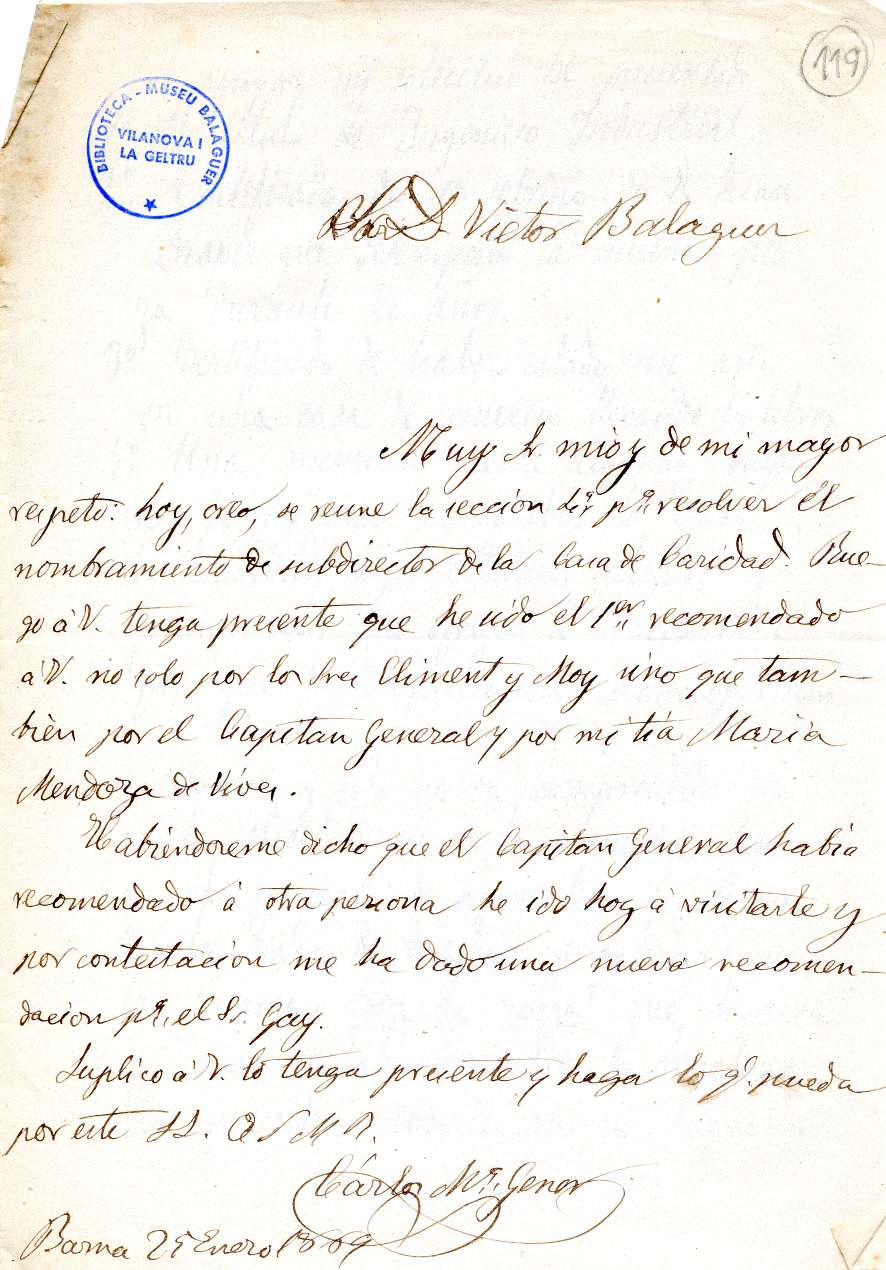 119
BIBLIOTECA - MUSEU BALAGUER
VILANOVA I
LA GELTRU
D. Victor Balaguer
Muy Sr. mio y de mi mayor
respeto: hoy, creo, se reune la sección pª. resolver él
nombramiento de subdirector de la Casa de Caridad. Rue-
go á V. tenga presente que he sido el 1er. recomendado
á V. no solo por los Sres Climent y Moy sino que tam-
bièn por el Capitan General y por mi tia Maria
Mendoza de Vives.
Habièndoseme dicho que el Capitan General habia
recomendado á otra persona he ido hoy á visitarle y
por contestacion me ha dado una nueva recomen-
dacion pª. el Sr. Gay.
Suplico á V. lo tenga presente y haga lo q. pueda
por este SS. Q S M B.
Cárlos Mª. Gener
Barna 25 Enero 1869